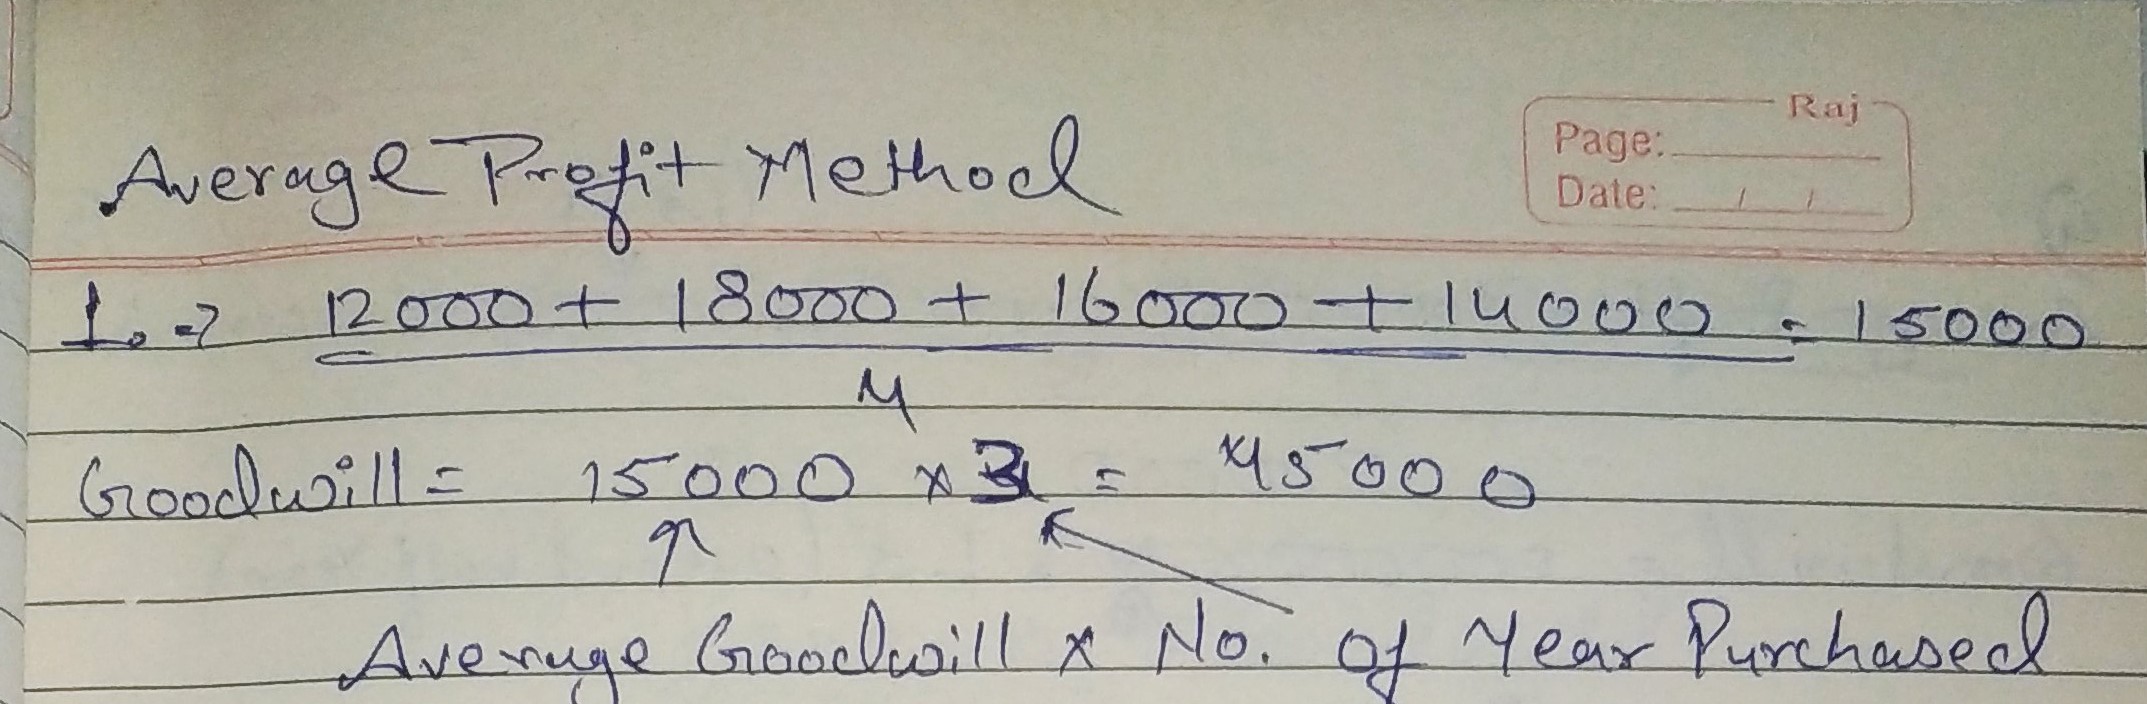 Raj
Page:
Date: / /
Average Profit Method
1. => 12000 + 18000 + 16000 + 14000 = 15000
4
Goodwill = 15000 × 3 = 45000
Average Goodwill × No. of Year Purchased